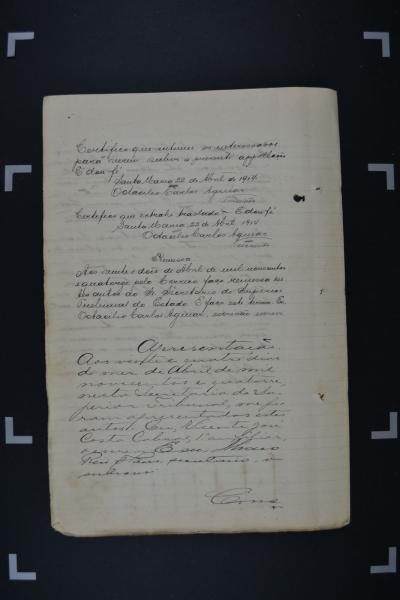 Certifico que intimei os interessados
para verem subir a presente appellação
E dou fé
Santa Maria 22 de Abril de 1914
Octacilio Carlos Aguiar
escrivão
Certifico que extrahi traslado – E dou fé
Santa Maria, 22 de Abril 1914
Octacilio Carlos Aguiar
escrivão
Remessa
Aos vinte e dois de Abril de mil novecentos
e quatorze pelo Correio faço remessa des
tes autos ao Sr. Secretario do Superior
Tribunal do Estado E faço este termo Eu
Octacilio Carlos Aguiar, escrivão escrevi
Apresentação.
Aos vinte e quatro dias
do mez de Abril de mil
novecentos e quatorze,
nesta Secretaria do Su-
perior Tribunal, me fo-
ram apresentados estes
autos. Eu, Vicente José
Costa Cabral,
escrevi. E eu,
secretario, o
subscrevi.